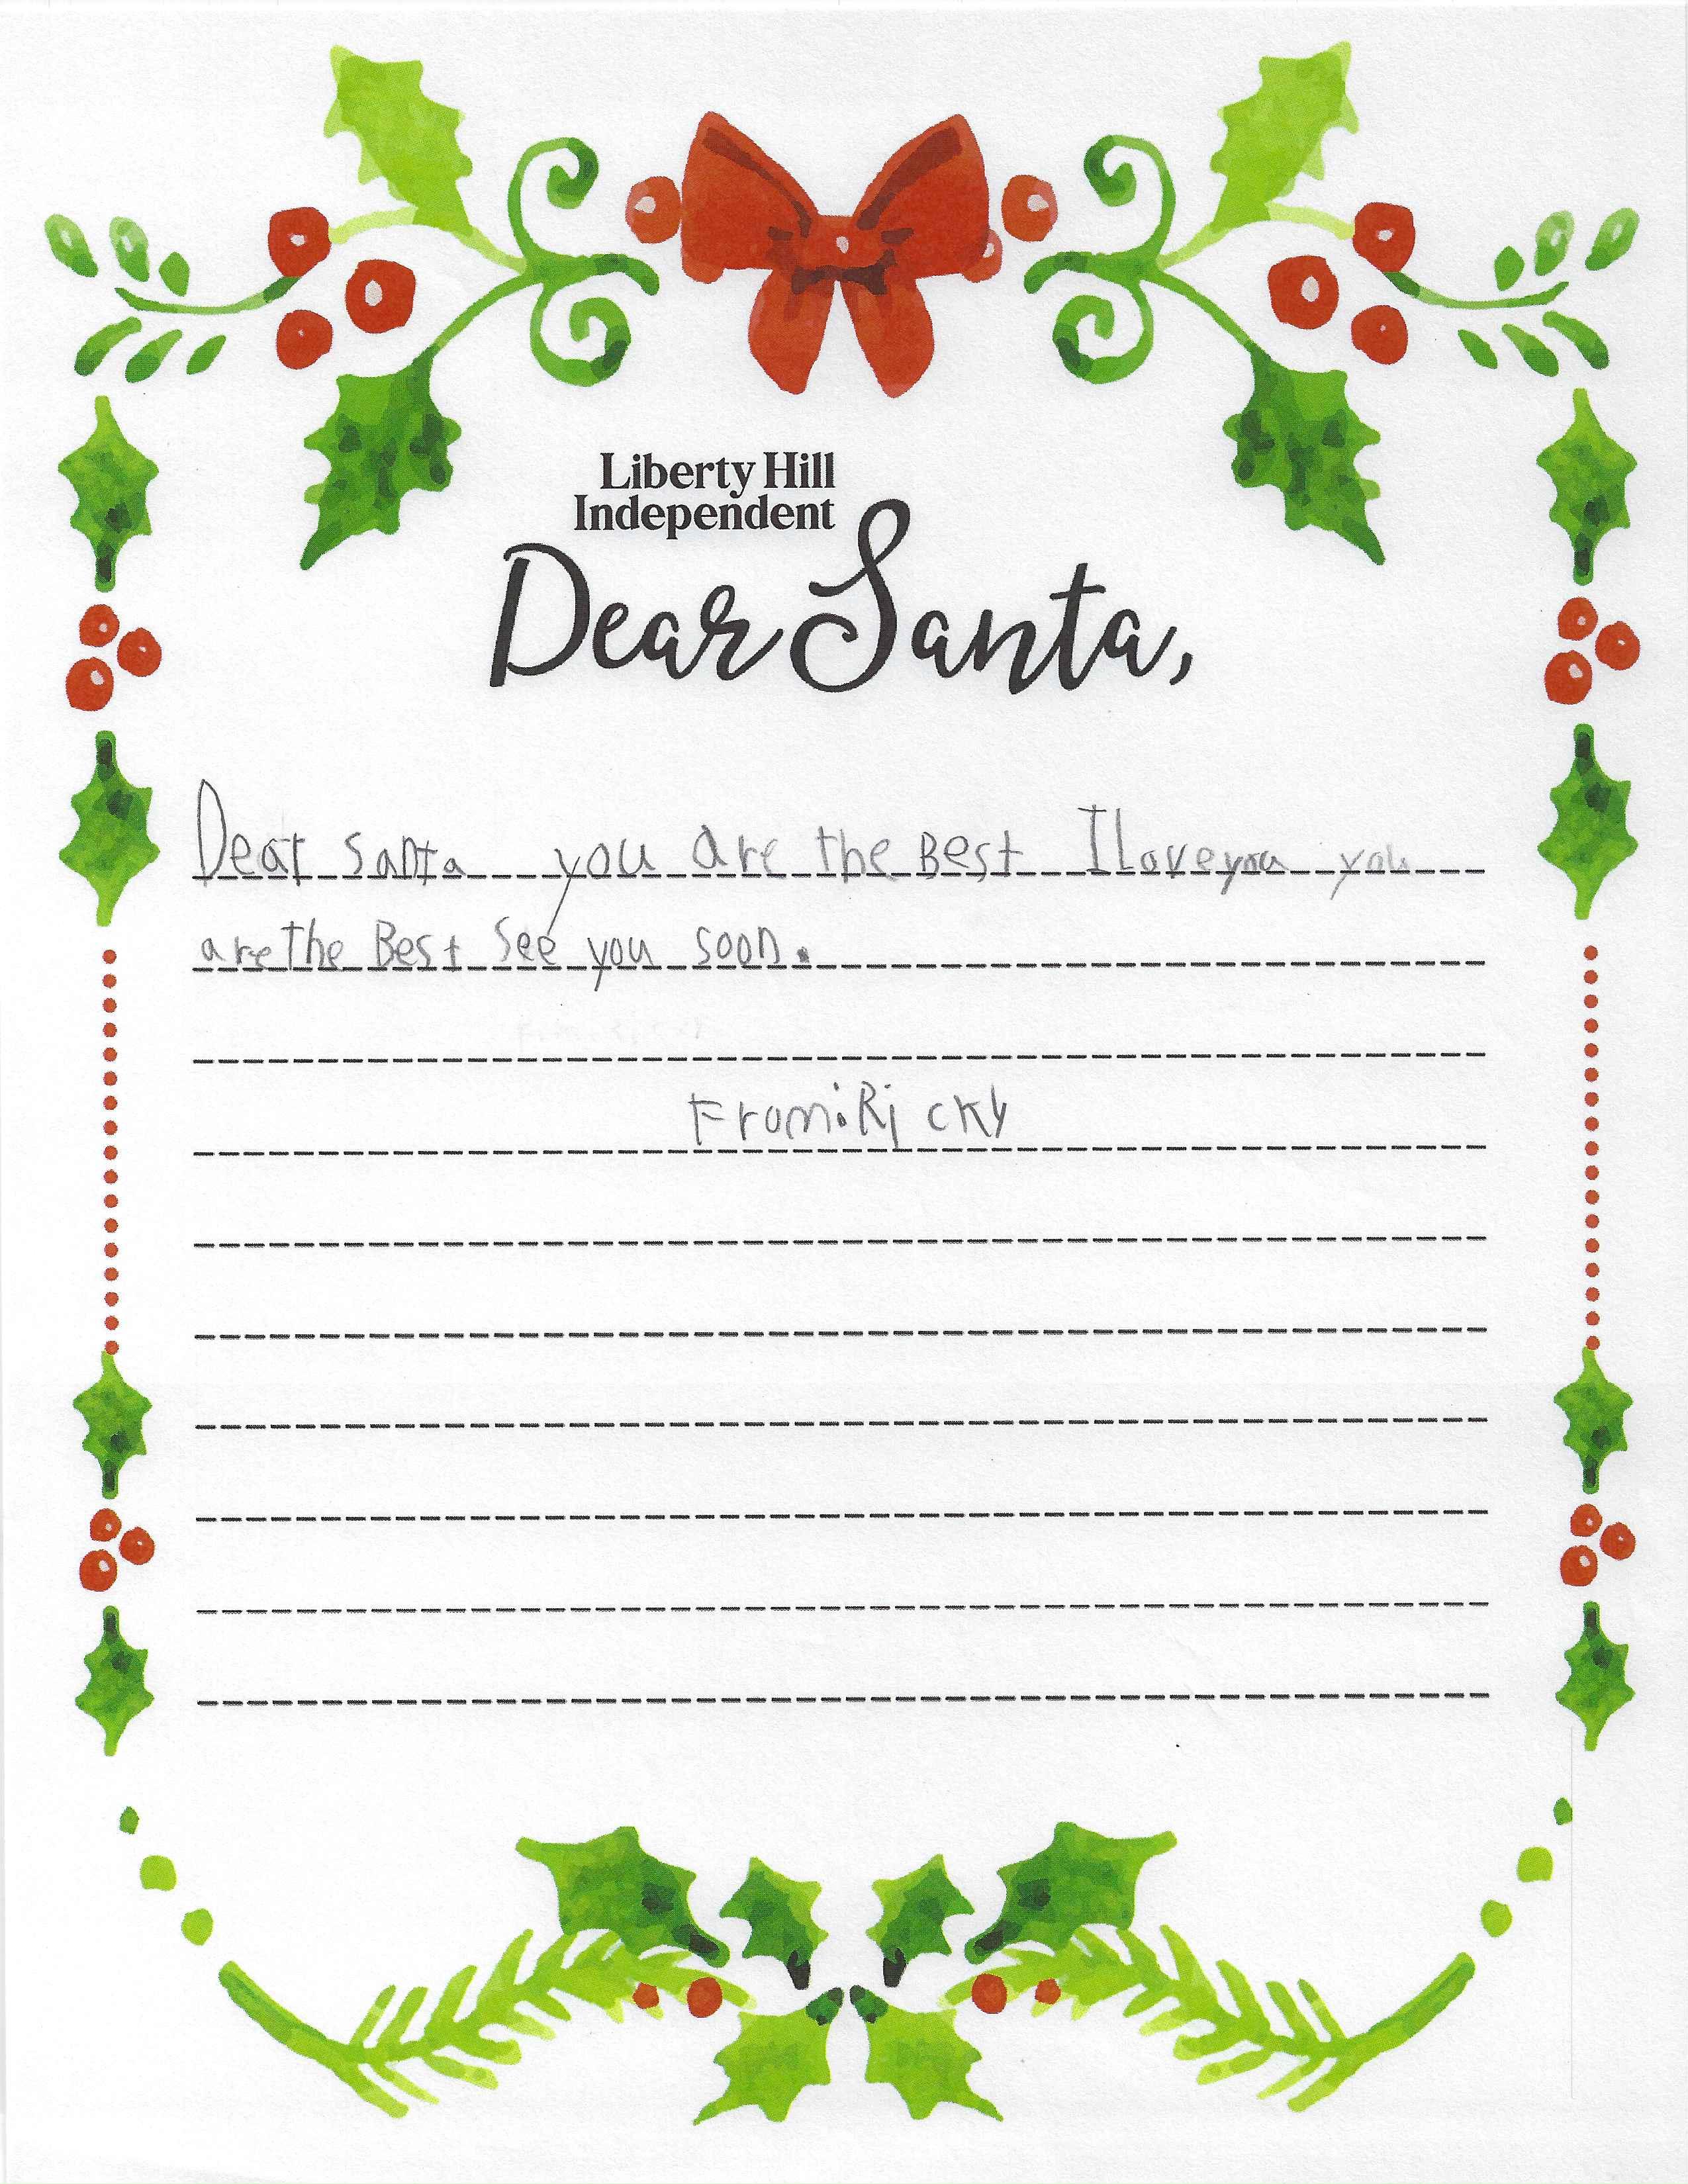 Liberty Hill
Independent
Dear Santa,
Dear Santa you are the Best I love you you
are the Best See you soon.
From: Ricky